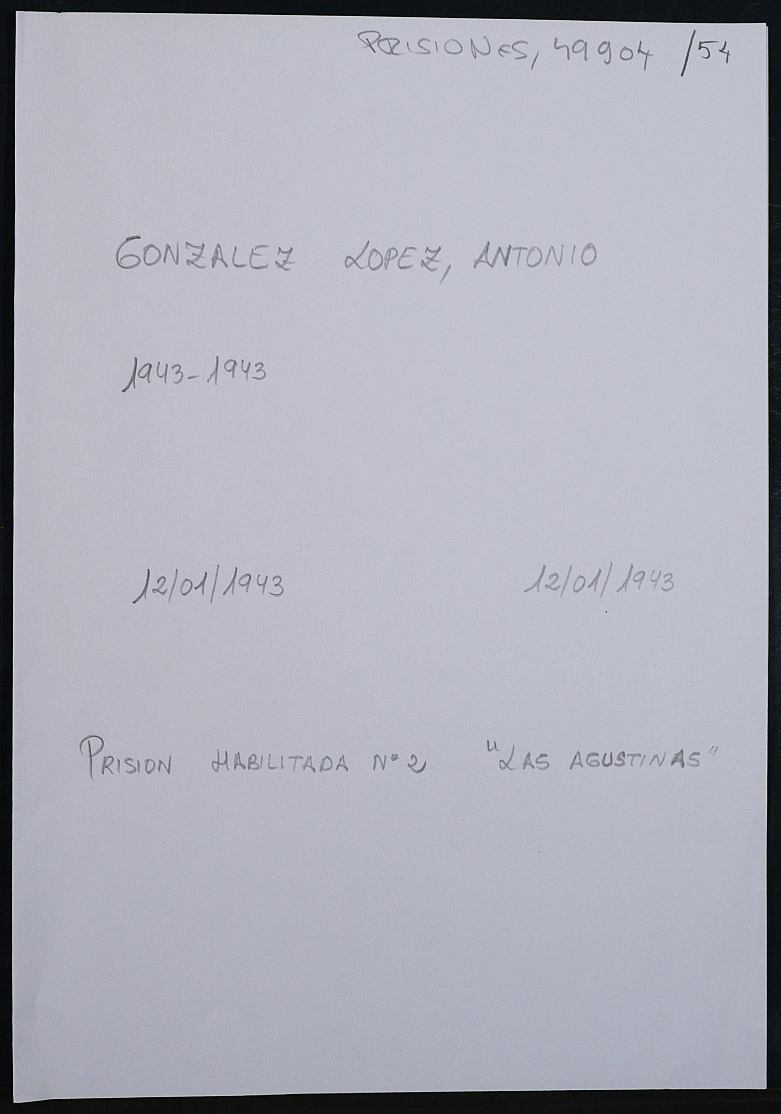 PRISIONES, 49904 /54
GONZALEZ LOPEZ, ANTONIO
1943-1943
12/01/1943 12/01/1943
PRISION HABILITADA Nº 2 "LAS AGUSTINAS"